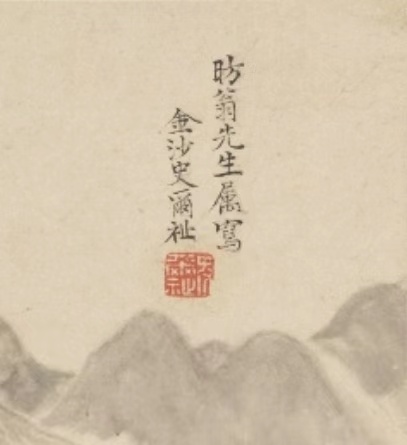 昉翁先生属寫
金沙史爾祉